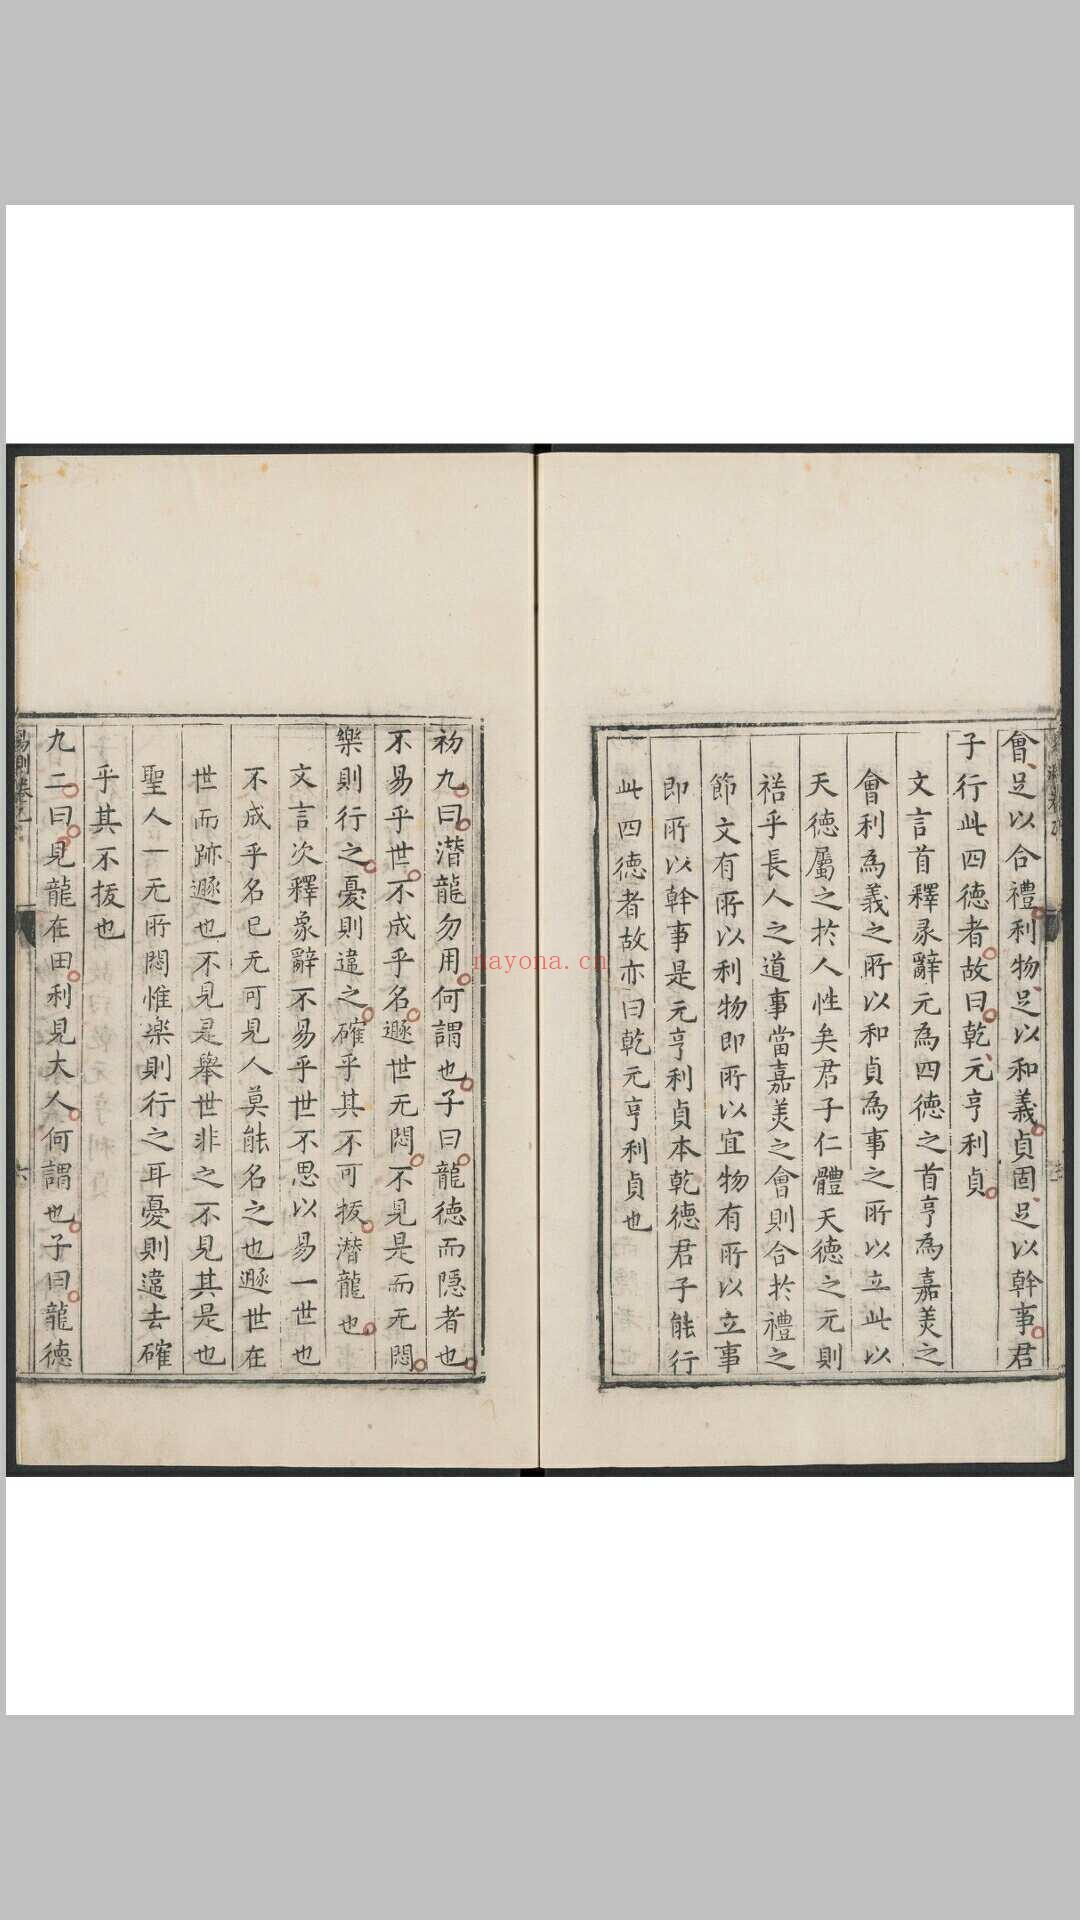 會足以合禮利物足以和義貞固足以幹事君
子行此四德者故曰乾元亨利貞
文言首釋彖辭元為四德之首亨為嘉美之
會利為義之所以和貞為事之所以立此以
天德屬之於人性矣君子仁體天德之元則
禇乎長人之道事當嘉美之會則合於禮之
節文有所以利物即所以宜物有所以立事
即所以幹事是元亨利貞本乾德君子能行
此四德者故亦曰乾元亨利貞也
初九曰潛龍勿用何謂也子曰龍德而隱者也
不易乎世不成乎名遯世无悶不見是而无悶
樂則行之憂則違之確乎其不可拔潛龍也
文言次釋象辭不易乎世不思以易一世也
不成乎名已无可見人莫能名之也遯世在
世而跡遯也不見是舉世非之不見其是也
聖人一无所悶惟樂則行之耳憂則違去確
乎其不拔也
九二曰見龍在田利見大人何謂也子曰龍德
六
nayona.cn